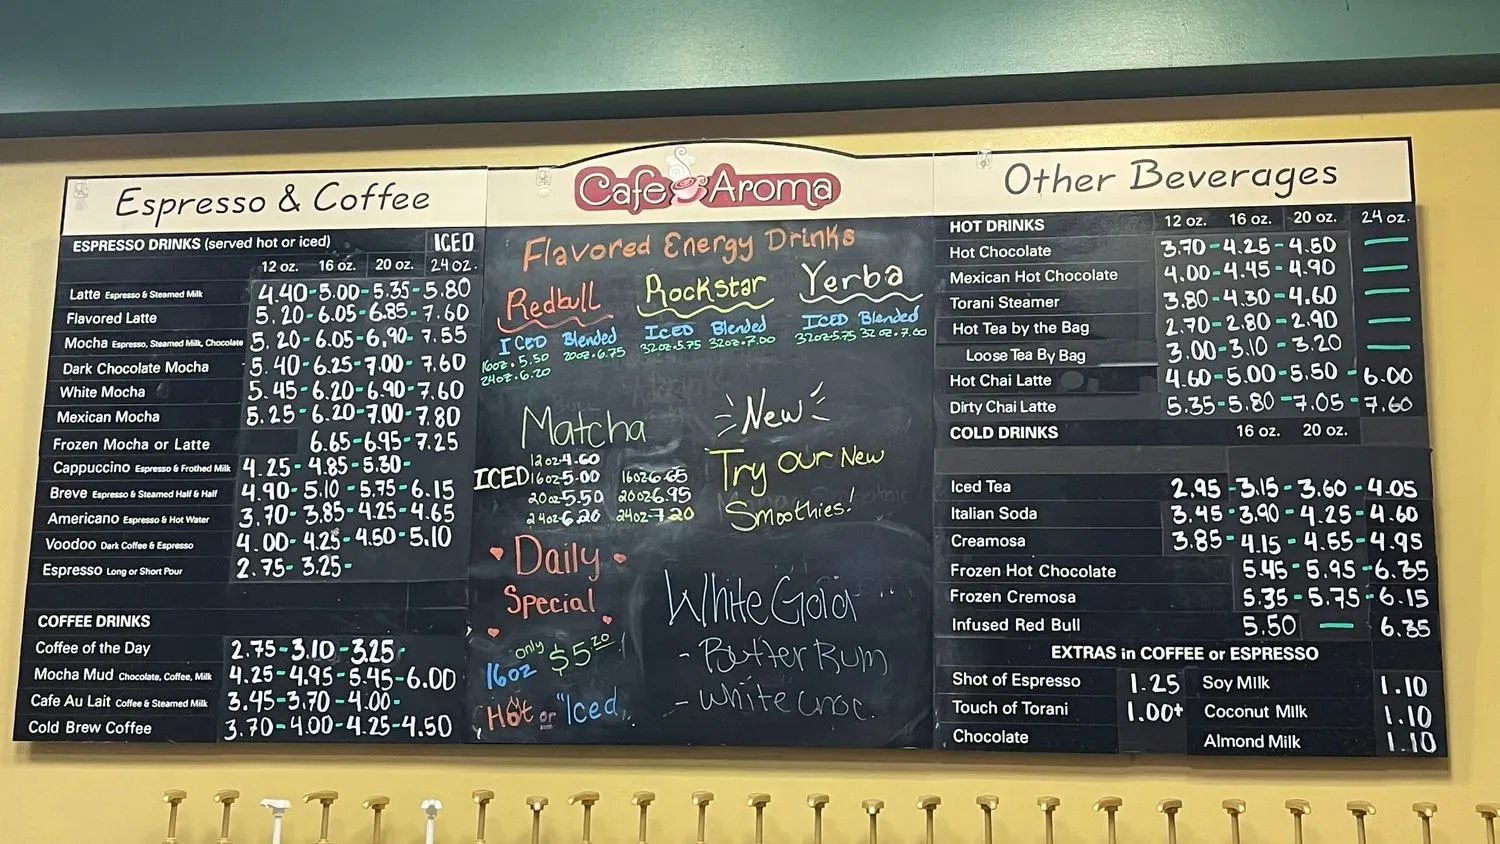 Espresso & Coffee
ESPRESSO DRINKS (served hot or iced) ICED
12 oz. 16 oz. 20 oz. 24 oz.
Latte Espresso & Steamed Milk 4.40-5.00-5.35-5.80
Flavored Latte 5.20-6.05-6.85-7.60
Mocha Espresso, Steamed Milk, Chocolate 5.20-6.05-6.90-7.55
Dark Chocolate Mocha 5.40-6.25-7.00-7.60
White Mocha 5.45-6.20-6.90-7.60
Mexican Mocha 5.25-6.20-7.00-7.80
Frozen Mocha or Latte 6.65-6.95-7.25
Cappuccino Espresso & Frothed Milk 4.25-4.85-5.30-
Breve Espresso & Steamed Half & Half 4.90-5.10-5.75-6.15
Americano Espresso & Hot Water 3.70-3.85-4.25-4.65
Voodoo Dark Coffee & Espresso 4.00-4.25-4.50-5.10
Espresso Long or Short Pour 2.75-3.25-
COFFEE DRINKS
Coffee of the Day 2.75-3.10-3.25-
Mocha Mud Chocolate, Coffee, Milk 4.25-4.95-5.45-6.00
Cafe Au Lait Coffee & Steamed Milk 3.45-3.70-4.00-
Cold Brew Coffee 3.70-4.00-4.25-4.50
Cafe Aroma
Flavored Energy Drinks
Redbull Rockstar Yerba
ICED Blended ICED Blended ICED Blended
16oz.5.50 20oz.6.75 32oz.5.75 32oz.7.00 32oz.5.75 32oz.7.00
24oz.6.20
Matcha
12oz4.60
ICED 16oz5.00 16oz6.65
20oz5.50 20oz6.95
24oz6.20 24oz7.20
New
Try our New
Smoothies!
Daily
Special
only $5.20
16oz
Hot or "Iced
White Gold
- Butter Rum
- White Choc.
Other Beverages
HOT DRINKS 12 oz. 16 oz. 20 oz. 24 oz.
Hot Chocolate 3.70-4.25-4.50 —
Mexican Hot Chocolate 4.00-4.45-4.90 —
Torani Steamer 3.80-4.30-4.60 —
Hot Tea by the Bag 2.70-2.80-2.90 —
Loose Tea By Bag 3.00-3.10-3.20 —
Hot Chai Latte 4.60-5.00-5.50-6.00
Dirty Chai Latte 5.35-5.80-7.05-7.60
COLD DRINKS 16 oz. 20 oz.
Iced Tea 2.95-3.15-3.60-4.05
Italian Soda 3.45-3.90-4.25-4.60
Creamosa 3.85-4.15-4.55-4.95
Frozen Hot Chocolate 5.45-5.95-6.35
Frozen Cremosa 5.35-5.75-6.15
Infused Red Bull 5.50 — 6.35
EXTRAS in COFFEE or ESPRESSO
Shot of Espresso 1.25 Soy Milk 1.10
Touch of Torani 1.00+ Coconut Milk 1.10
Chocolate Almond Milk 1.10